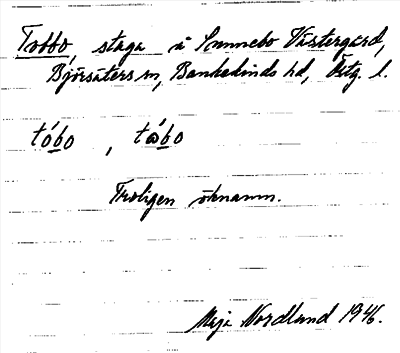 Tobbo, stuga å Sunnebo Västergård,
Björsäters sn, Bankekinds hd, Östg. l.
tóbo, tábo
Troligen öknamn.
Maja Nordlund 1946.